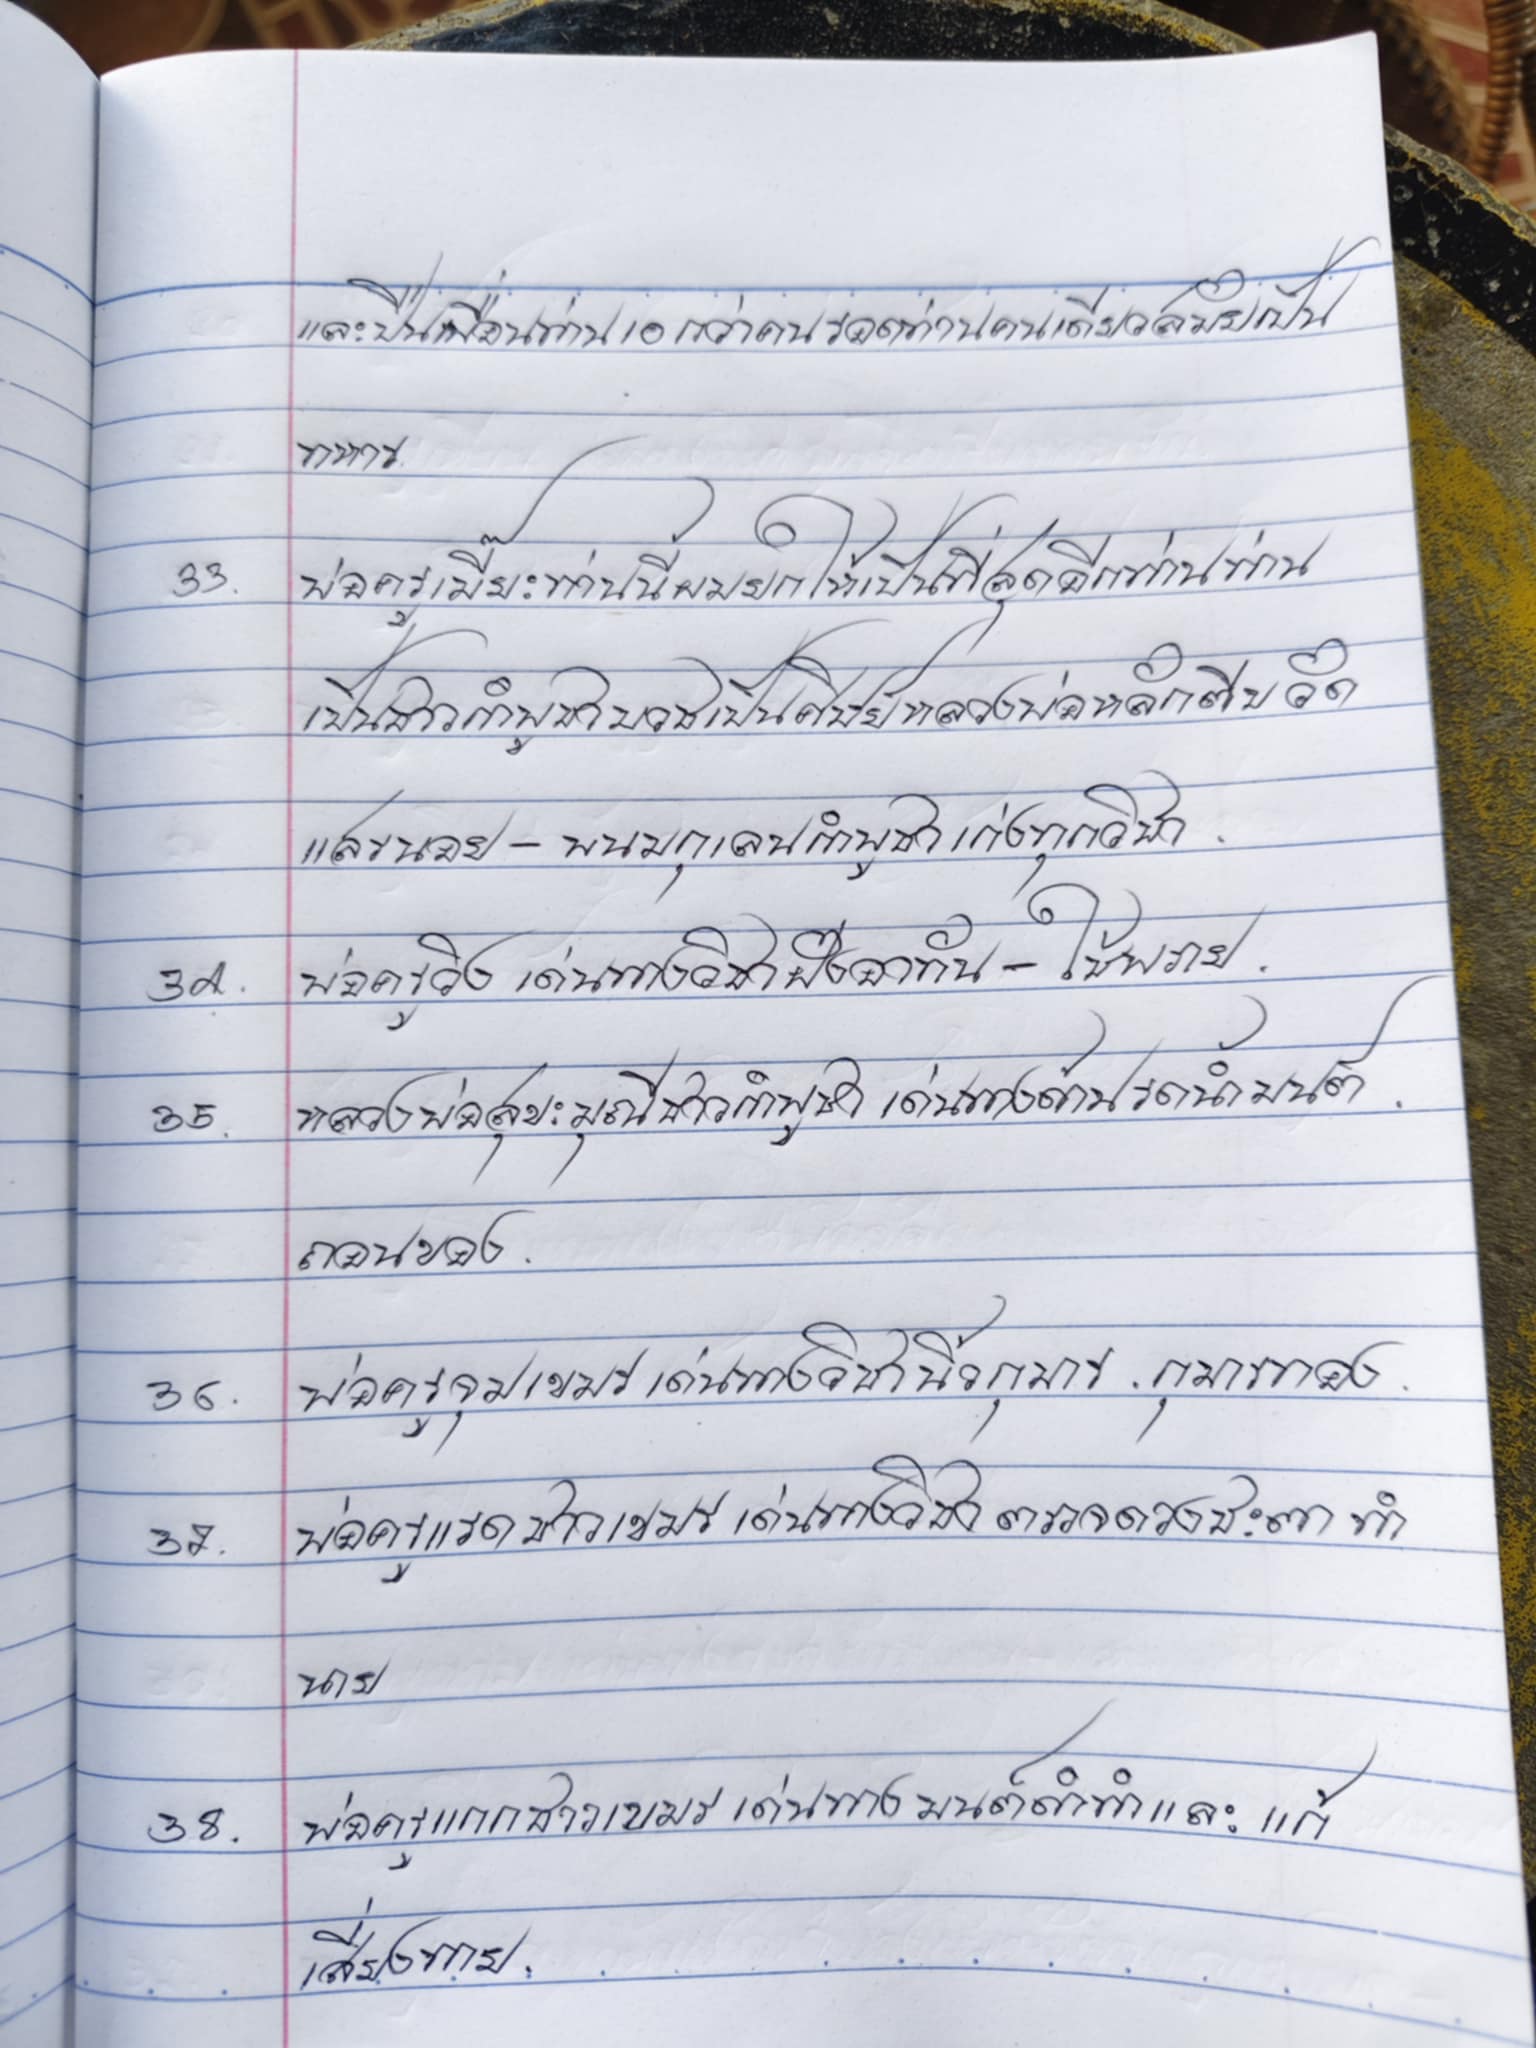 และปืนเพื่อนท่าน 10 กว่าคนรอดท่านคนเดียวสมัยเป็น
ทหาร
33. พ่อครูเมี๊ยะท่านนี้ผมยกให้เป็นที่สุดอีกท่านท่าน
เป็นชาวกำพูชาบวชเป็นศิษย์หลวงพ่อหลักตีบวัด
แสรนอย - พนมกุเลนกำพูชา เก่งทุกวิชา.
34. พ่อครูวิง เด่นทางวิชาฝังอาทัน - ใช้พราย.
35. หลวงพ่อสุขะมุณีชาวกำพูชา เด่นทางด้านรดน้ำมนต์.
ถอนของ.
36. พ่อครูจุมเขมร เด่นทางวิชานิ้วกุมาร. กุมารทอง.
37. พ่อครูแรดชาวเขมร เด่นทางวิชา ตรวจดวงชะตา ทำ
นาย
38. พ่อครูแกกชาวเขมร เด่นทาง มนต์ดำทำและ แก้
เสี่ยงทาย.